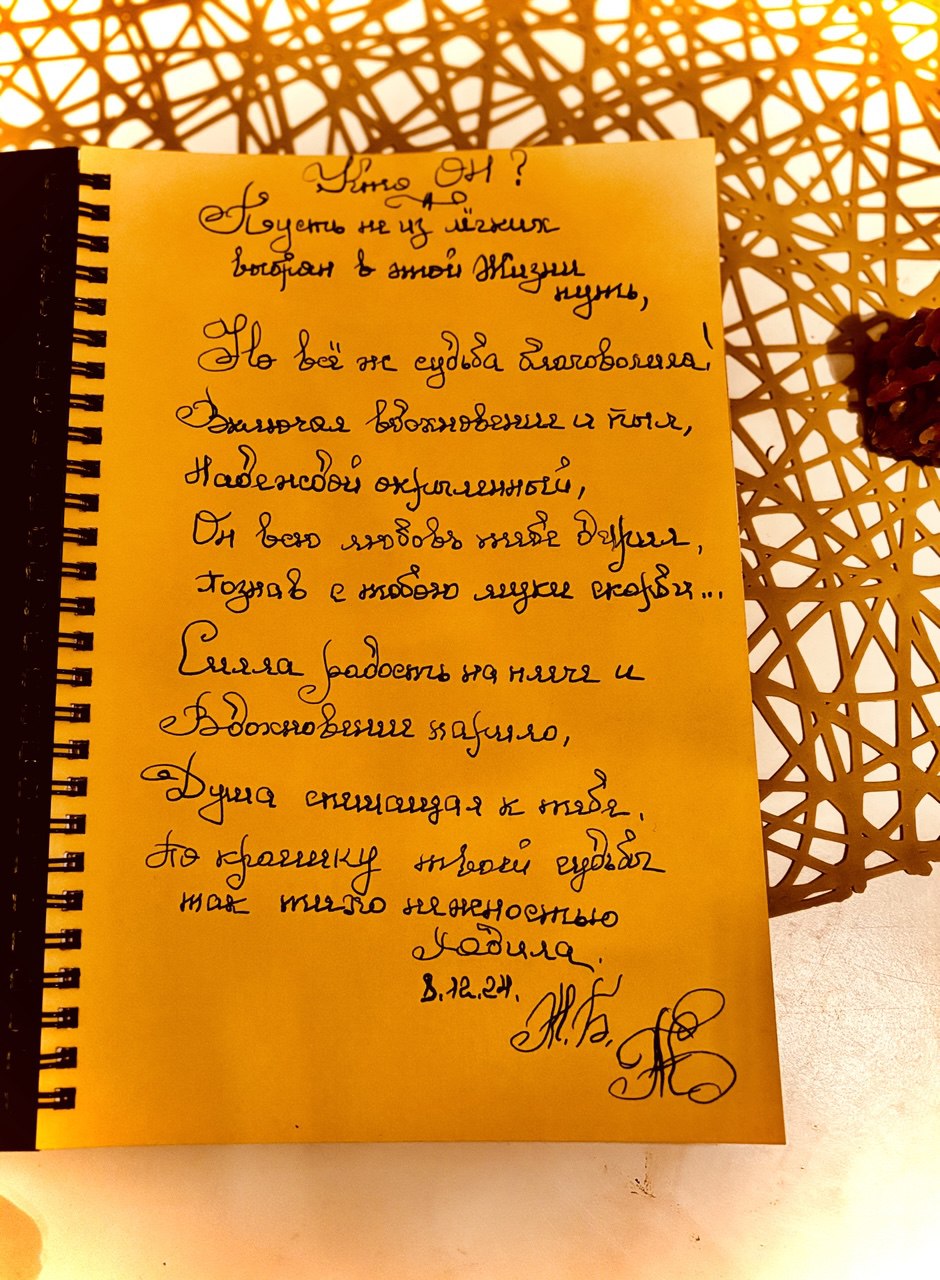 Кто ОН?
Пусть не из лёгких
выбран в этой Жизни
путь,
Но всё ж судьба благоволила!
Включая вдохновение и пыл,
Надеждой окрыленный,
Он всю любовь тебе дарил,
Познав с тобою муки скорби...
Сияла радость на плече и
Вдохновение парило,
Душа спешащая к тебе.
По краешку твоей судьбы
так тихо нежностью
ходила.
8.12.24.
Ж.Б.